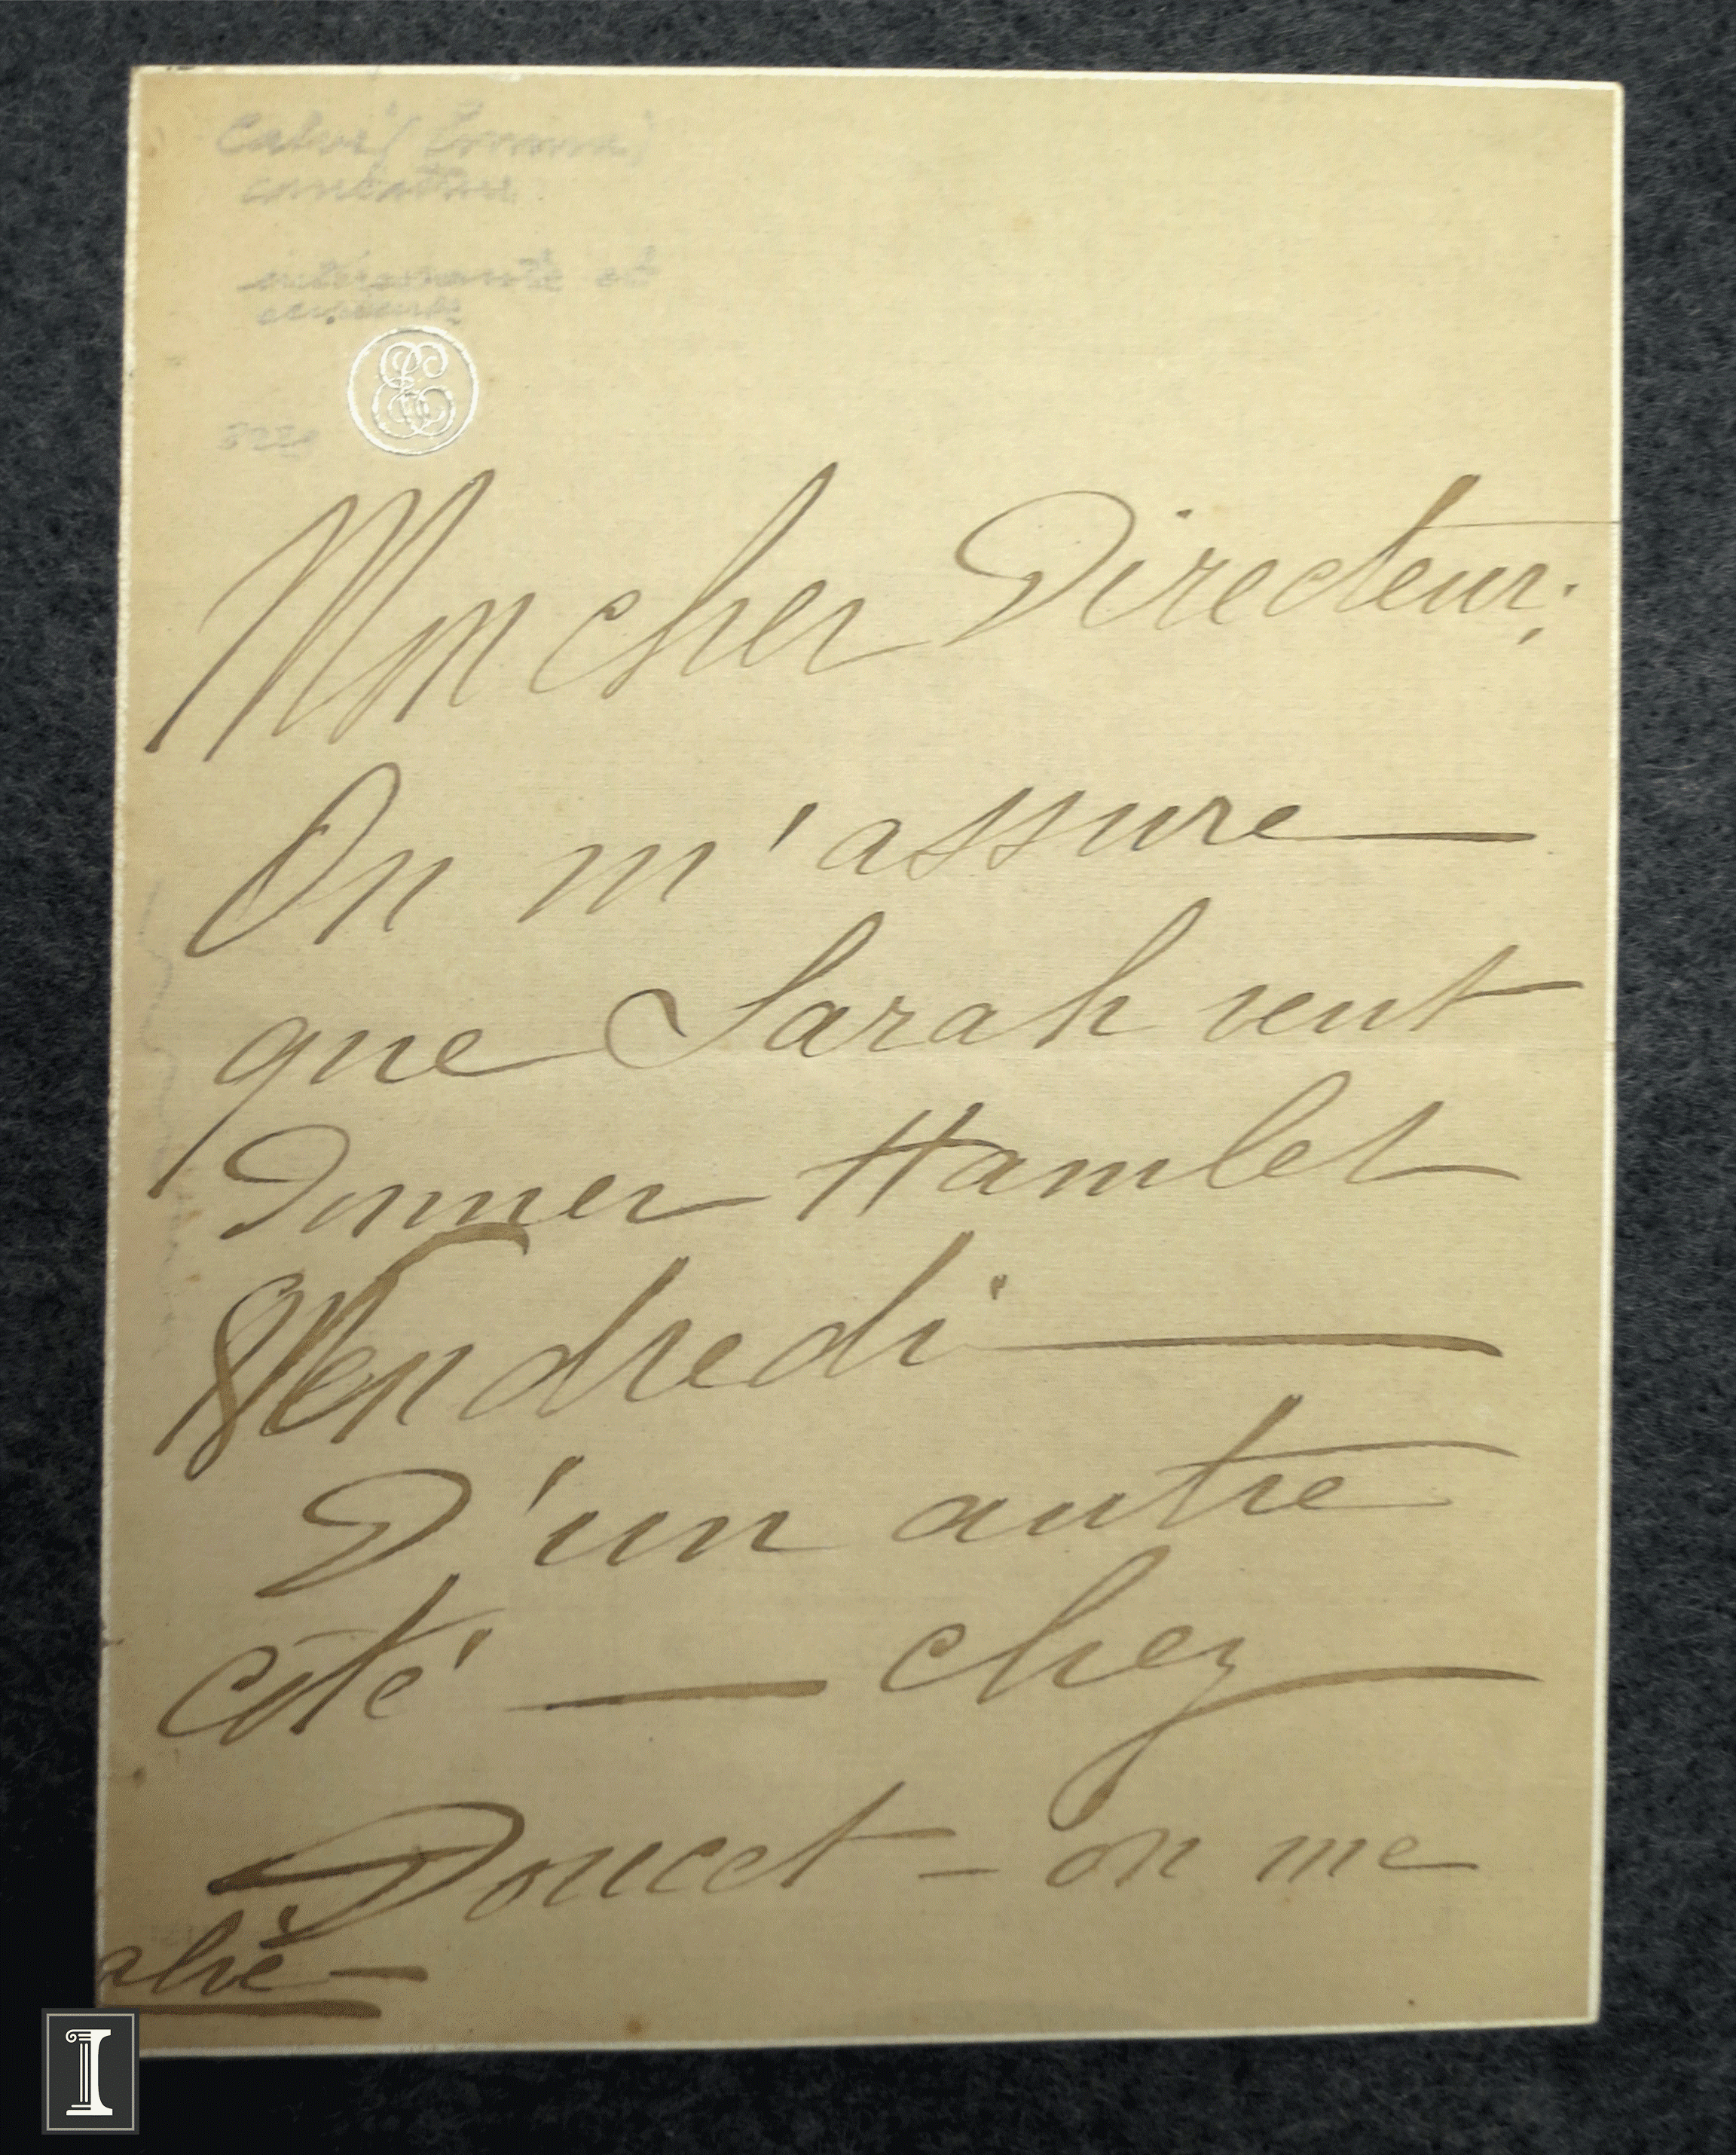 Calvé (Emma)
cantatrice
intéressante et
curieuse
EC
Mon cher Directeur;
On m'assure
que Sarah veut
Donner Hamlet
Vendredi
D'un autre
côté — chez
Doucet – on me
alvé –
I